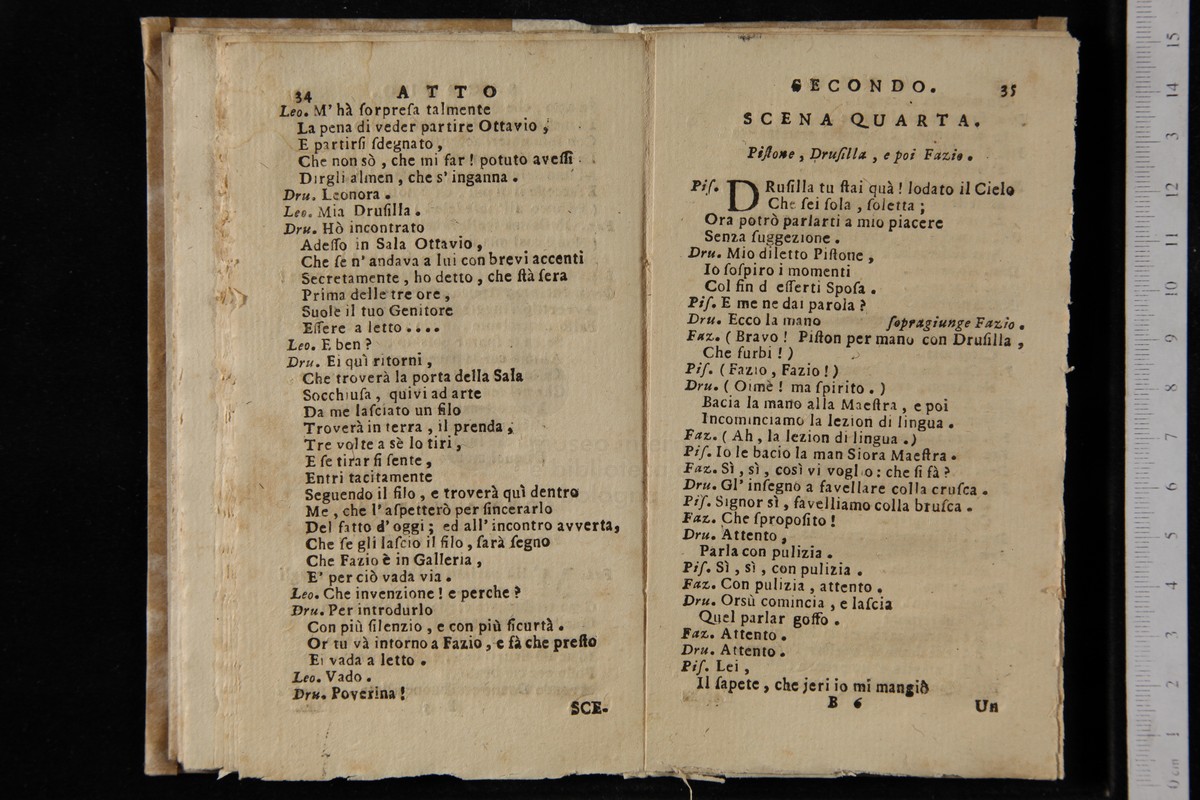 34 ATTO
Leo. M' hà ſorpreſa talmente
La pena di veder partire Ottavio ;
E partirſi ſdegnato ,
Che non sò , che mi far ! potuto aveſſi
Dirgli almen , che s' inganna .
Dru. Leonora .
Leo. Mia Druſilla .
Dru. Hò incontrato
Adeſſo in Sala Ottavio ,
Che ſe n' andava a lui con brevi accenti
Secretamente , ho detto , che ſtà ſera
Prima delle tre ore ,
Suole il tuo Genitore
Eſſere a letto ....
Leo. E ben ?
Dru. Ei quì ritorni ,
Che troverà la porta della Sala
Socchiuſa , quivi ad arte
Da me laſciato un filo
Troverà in terra , il prenda ,
Tre volte a sè lo tiri ,
E ſe tirar ſi ſente ,
Entri tacitamente
Seguendo il filo , e troverà quì dentro
Me , che l' aſpetterò per ſincerarlo
Del fatto d' oggi ; ed all' incontro avverta,
Che ſe gli laſcio il filo , ſarà ſegno
Che Fazio è in Galleria ,
E' per ciò vada via .
Leo. Che invenzione ! e perche ?
Dru. Per introdurlo
Con più ſilenzio , e con più ſicurtà .
Or tu và intorno a Fazio , e fà che preſto
Ei vada a letto .
Leo. Vado .
Dru. Poverina !
SCE-
SECONDO. 35
SCENA QUARTA.
Piſtone , Druſilla , e poi Fazio .
Piſ. DRuſilla tu ſtai quà ! lodato il Cielo
Che ſei ſola , ſoletta ;
Ora potrò parlarti a mio piacere
Senza ſuggezione .
Dru. Mio diletto Piſtone ,
Io ſoſpiro i momenti
Col fin d eſſerti Spoſa .
Piſ. E me ne dai parola ?
Dru. Ecco la mano ſopragiunge Fazio .
Faz. ( Bravo ! Piſton per mano con Druſilla ,
Che furbi ! )
Piſ. ( Fazio , Fazio ! )
Dru. ( Oimè ! ma ſpirito . )
Bacia la mano alla Maeſtra , e poi
Incominciamo la lezion di lingua .
Faz. ( Ah , la lezion di lingua .)
Piſ. Io le bacio la man Siora Maeſtra .
Faz. Sì , sì , così vi voglio : che ſi fà ?
Dru. Gl' inſegno a favellare colla cruſca .
Piſ. Signor sì , favelliamo colla bruſca .
Faz. Che ſpropoſito !
Dru. Attento ,
Parla con pulizia .
Piſ. Sì , sì , con pulizia .
Faz. Con pulizia , attento .
Dru. Orsù comincia , e laſcia
Quel parlar goffo .
Faz. Attento .
Dru. Attento .
Piſ. Lei ,
Il ſapete , che jeri io mi mangiò
B 6 Un